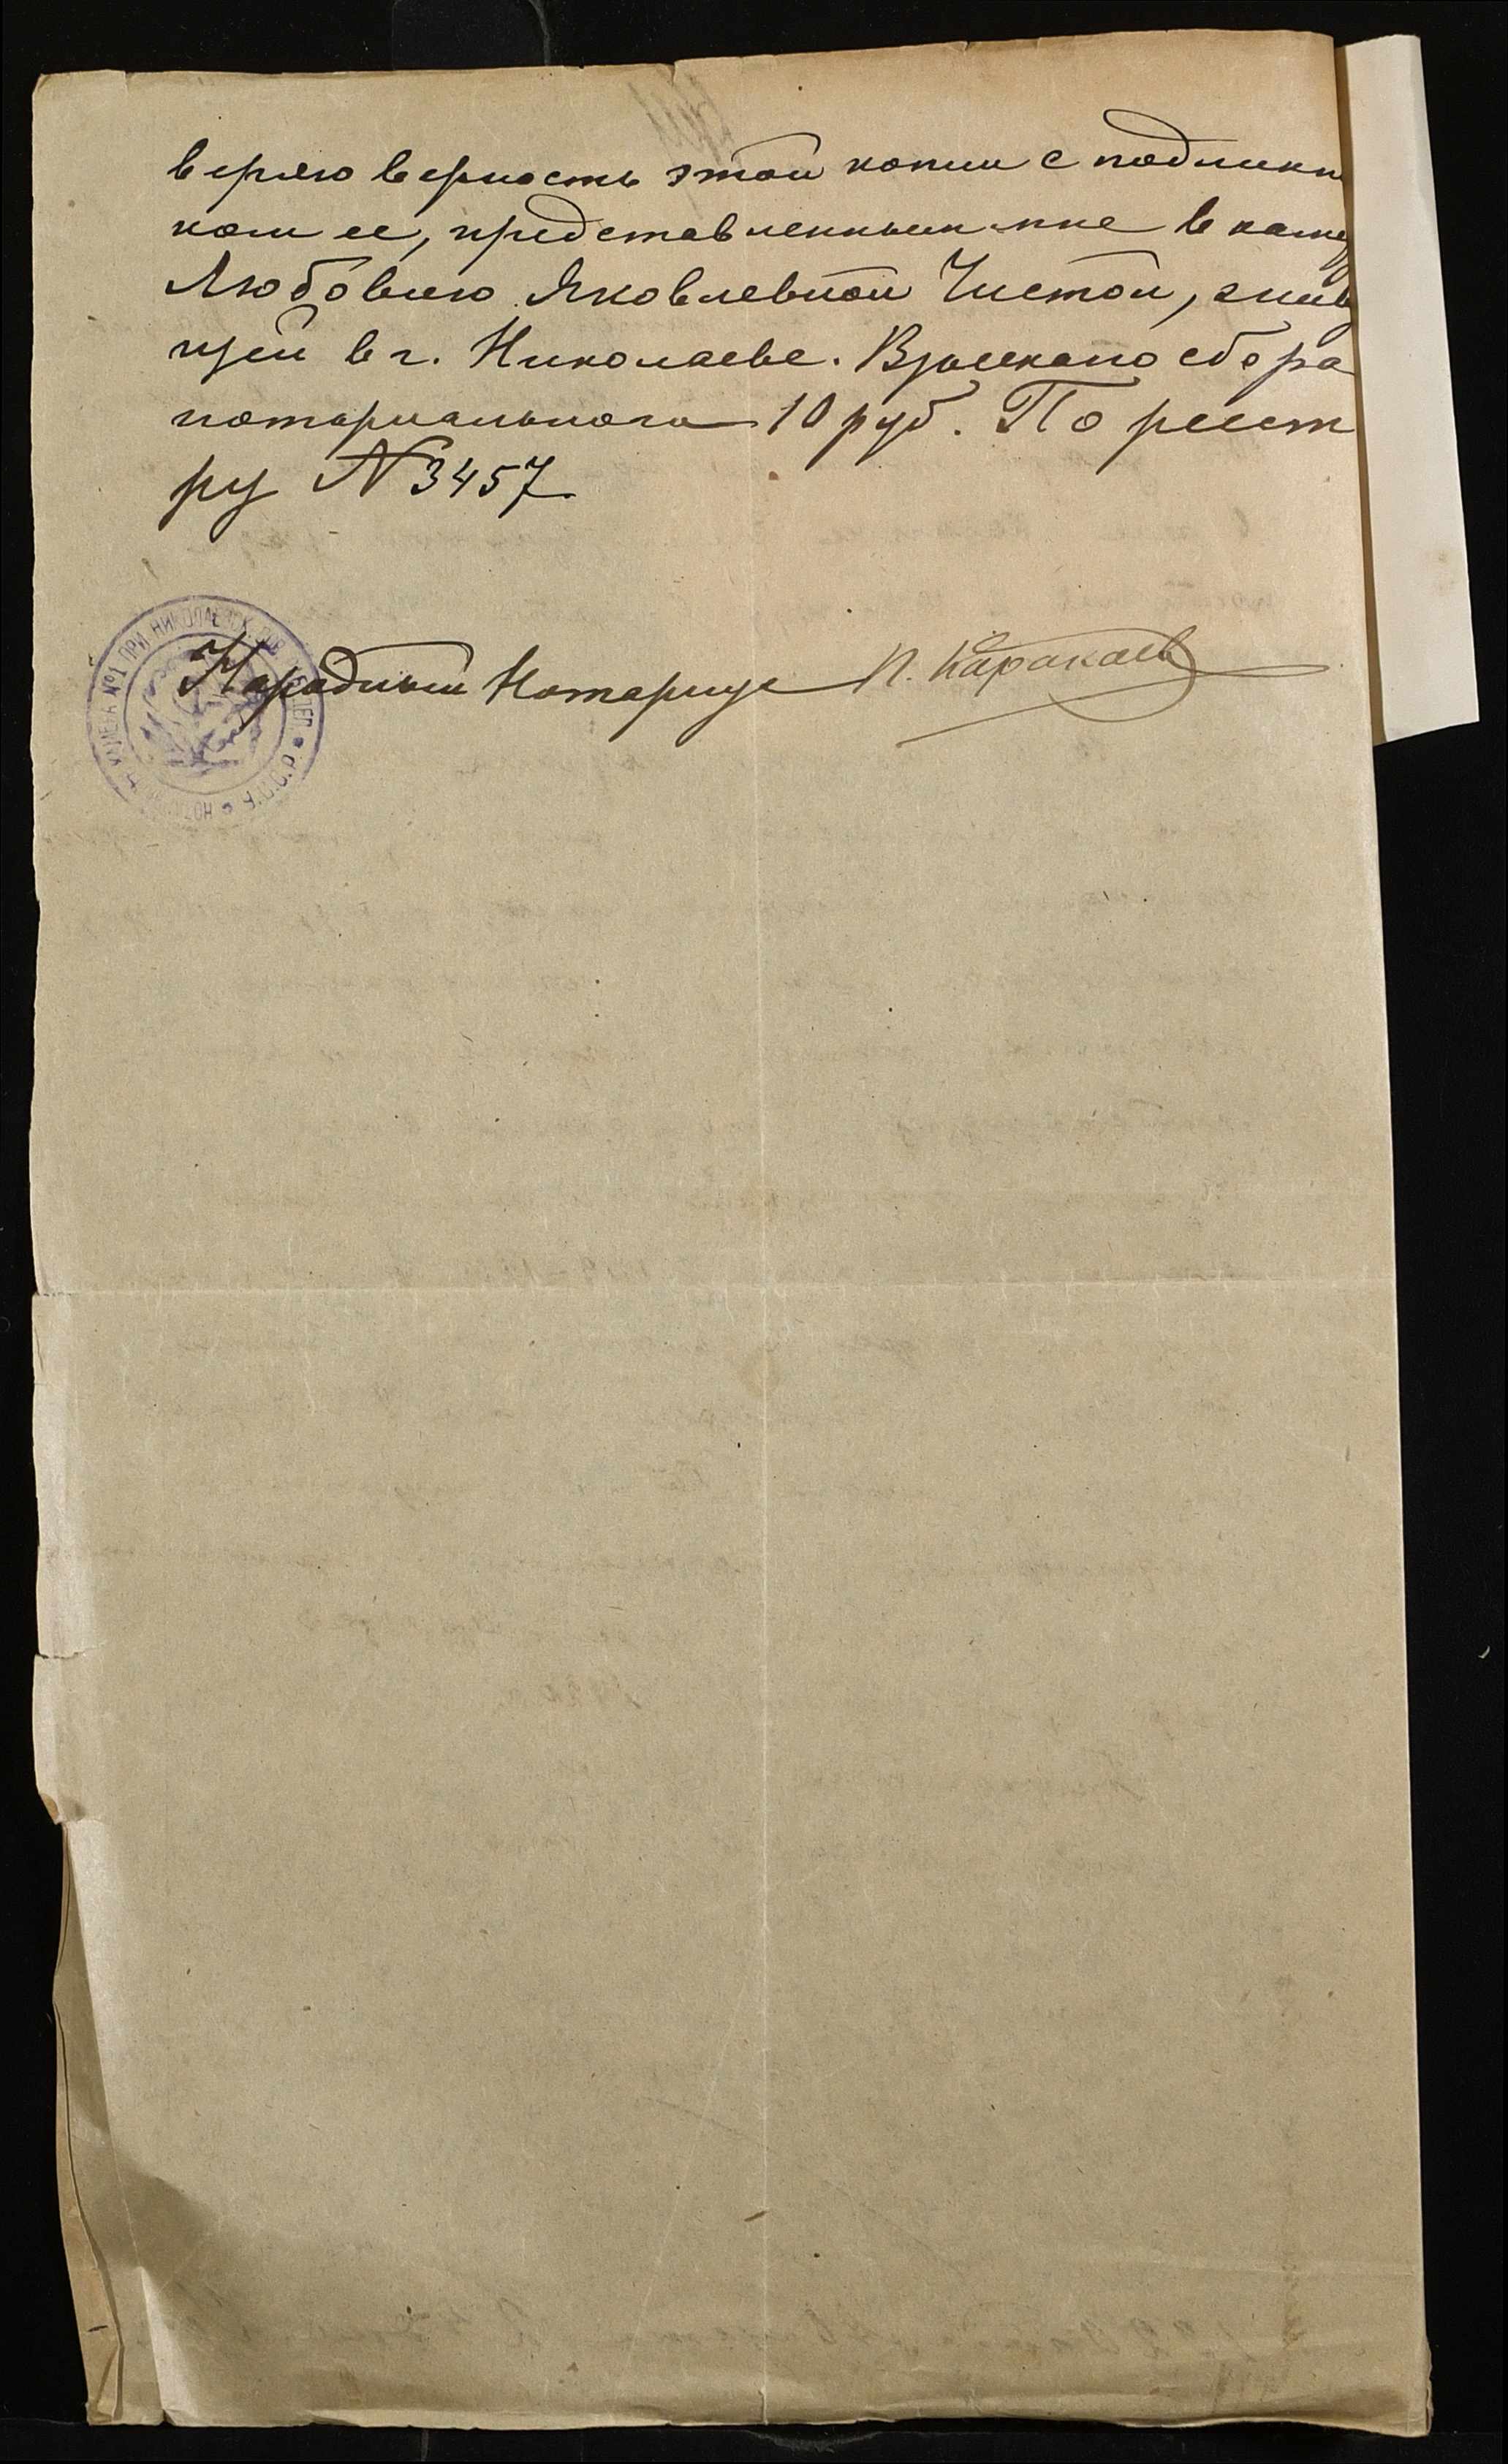 веряю верность этой копии с подлинни
ком ее, представленным мне в камер
Любовью Яковлевной Чистой, жив
щей в г. Николаеве. Взыскано сбора
нотариального 10 руб. По реест
ру N 3457.
Народный Нотариус П. Каракаев
КАМЕРА №1 ПРИ НИКОЛАЕВСК.
У.С.С.Р.